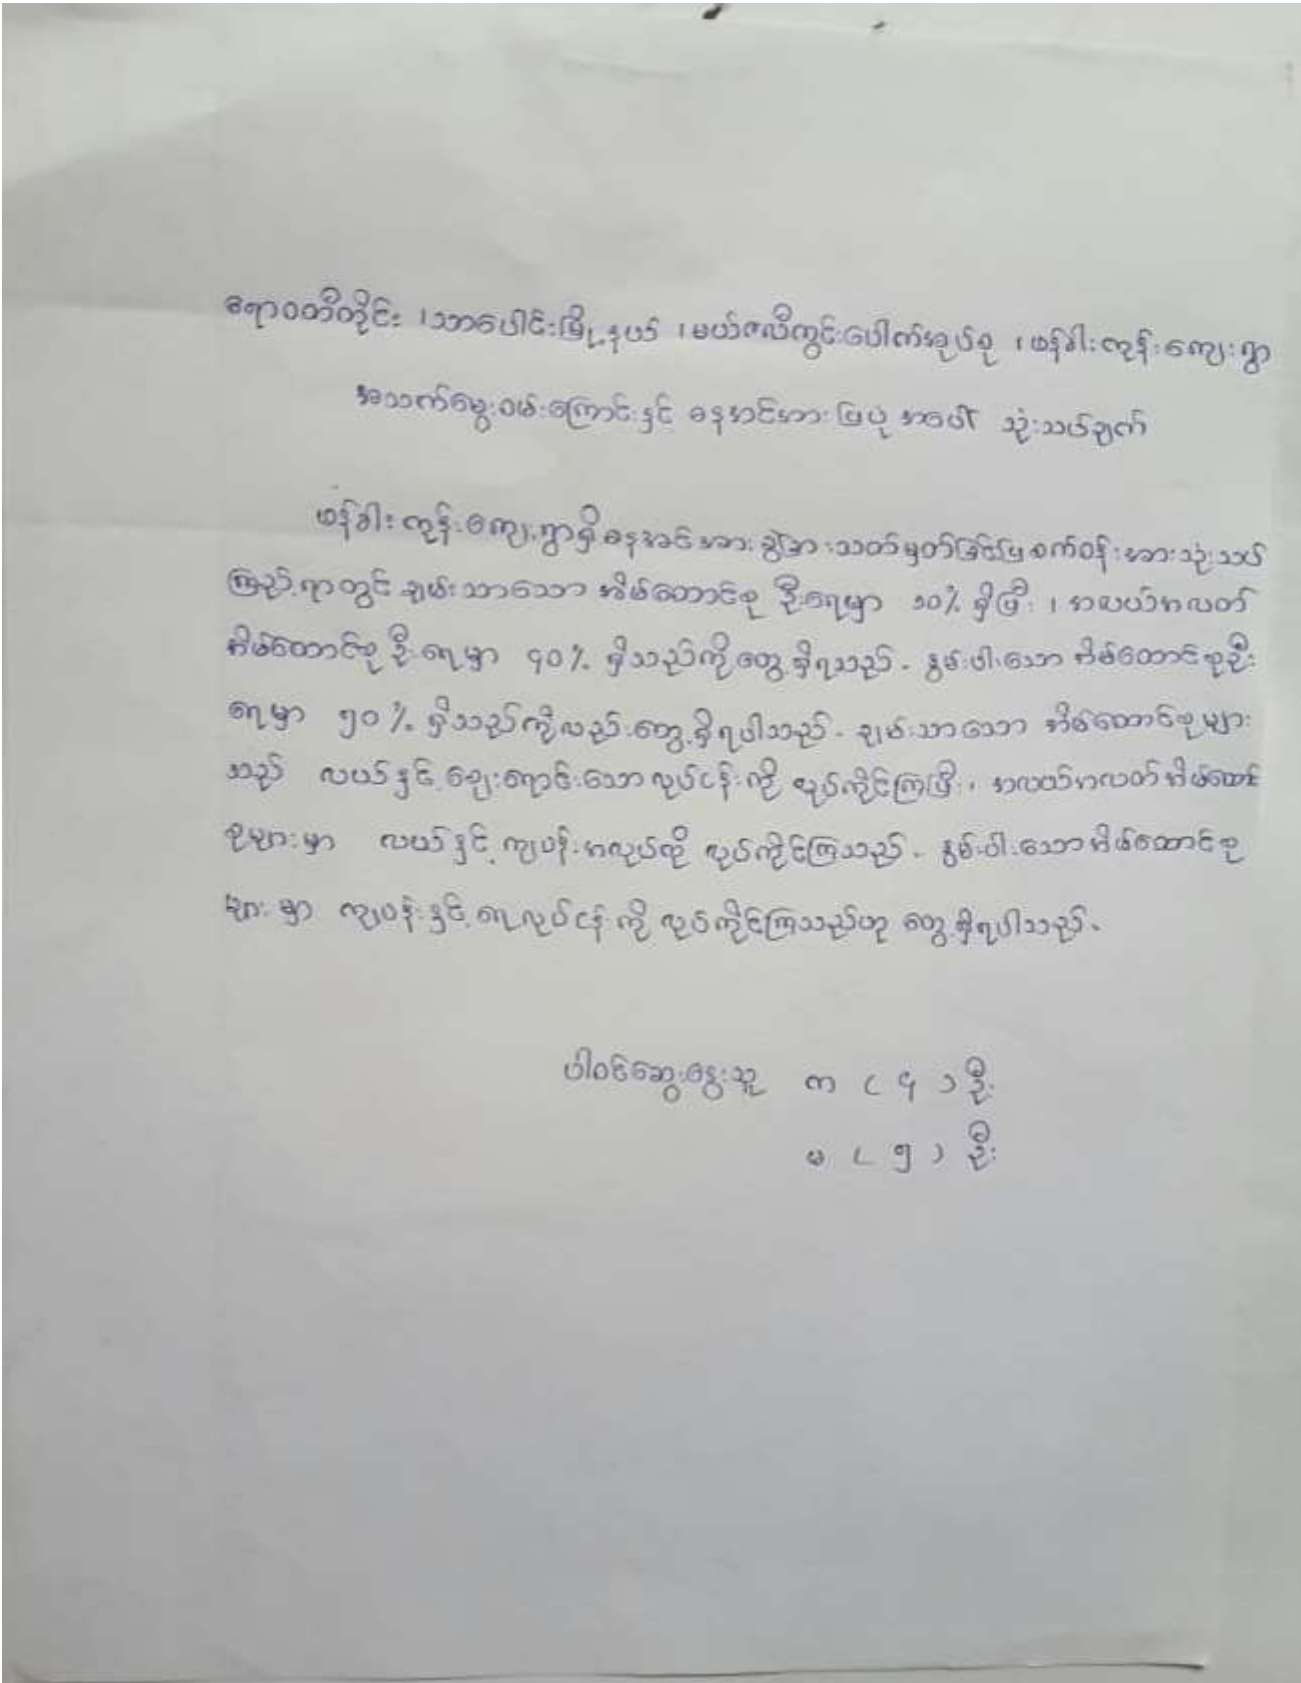 ဧရာဝတီတိုင်း ၊သာပေါင်းမြို့နယ် ၊မယ်ဇလီကွင်းပေါက်အုပ်စု ၊ဖန်ခါးကုန်းကျေးရွာ
အသက်မွေးဝမ်းကြောင်းနှင့် ဓနအင်အားပြပုံ အပေါ် သုံးသပ်ချက်
ဖန်ခါးကုန်းကျေးရွာရှိဓနအင်အားခွဲခြားသတ်မှတ်ခြင်းပြစက်ဝန်းအားသုံးသပ်
ကြည့်ရာတွင် ချမ်းသာသော အိမ်ထောင်စု ဦးရေမှာ ၁၀% ရှိပြီး ၊ အလယ်အလတ်
အိမ်ထောင်စုဦးရေမှာ ၄၀% ရှိသည်ကိုတွေ့ရှိရသည်. နွမ်းပါးသော အိမ်ထောင်စုဦး
ရေမှာ ၅၀% ရှိသည်ကိုလည်းတွေ့ရှိရပါသည်. ချမ်းသာသော အိမ်ထောင်စုများ
သည် လယ်နှင့်ဈေးရောင်းသောလုပ်ငန်းကို လုပ်ကိုင်ကြပြီး၊ အလယ်အလတ်အိမ်ထောင်
စုများမှာ လယ်နှင့် ကျပန်းအလုပ်ကို လုပ်ကိုင်ကြသည်. နွမ်းပါးသောအိမ်ထောင်စု
များမှာ ကျပန်းနှင့်ရေလုပ်ငန်းကို လုပ်ကိုင်ကြသည်ဟု တွေ့ရှိရပါသည်.
ပါဝင်ဆွေးနွေးသူ က ( ၄ ) ဦး
မ ( ၅ ) ဦး